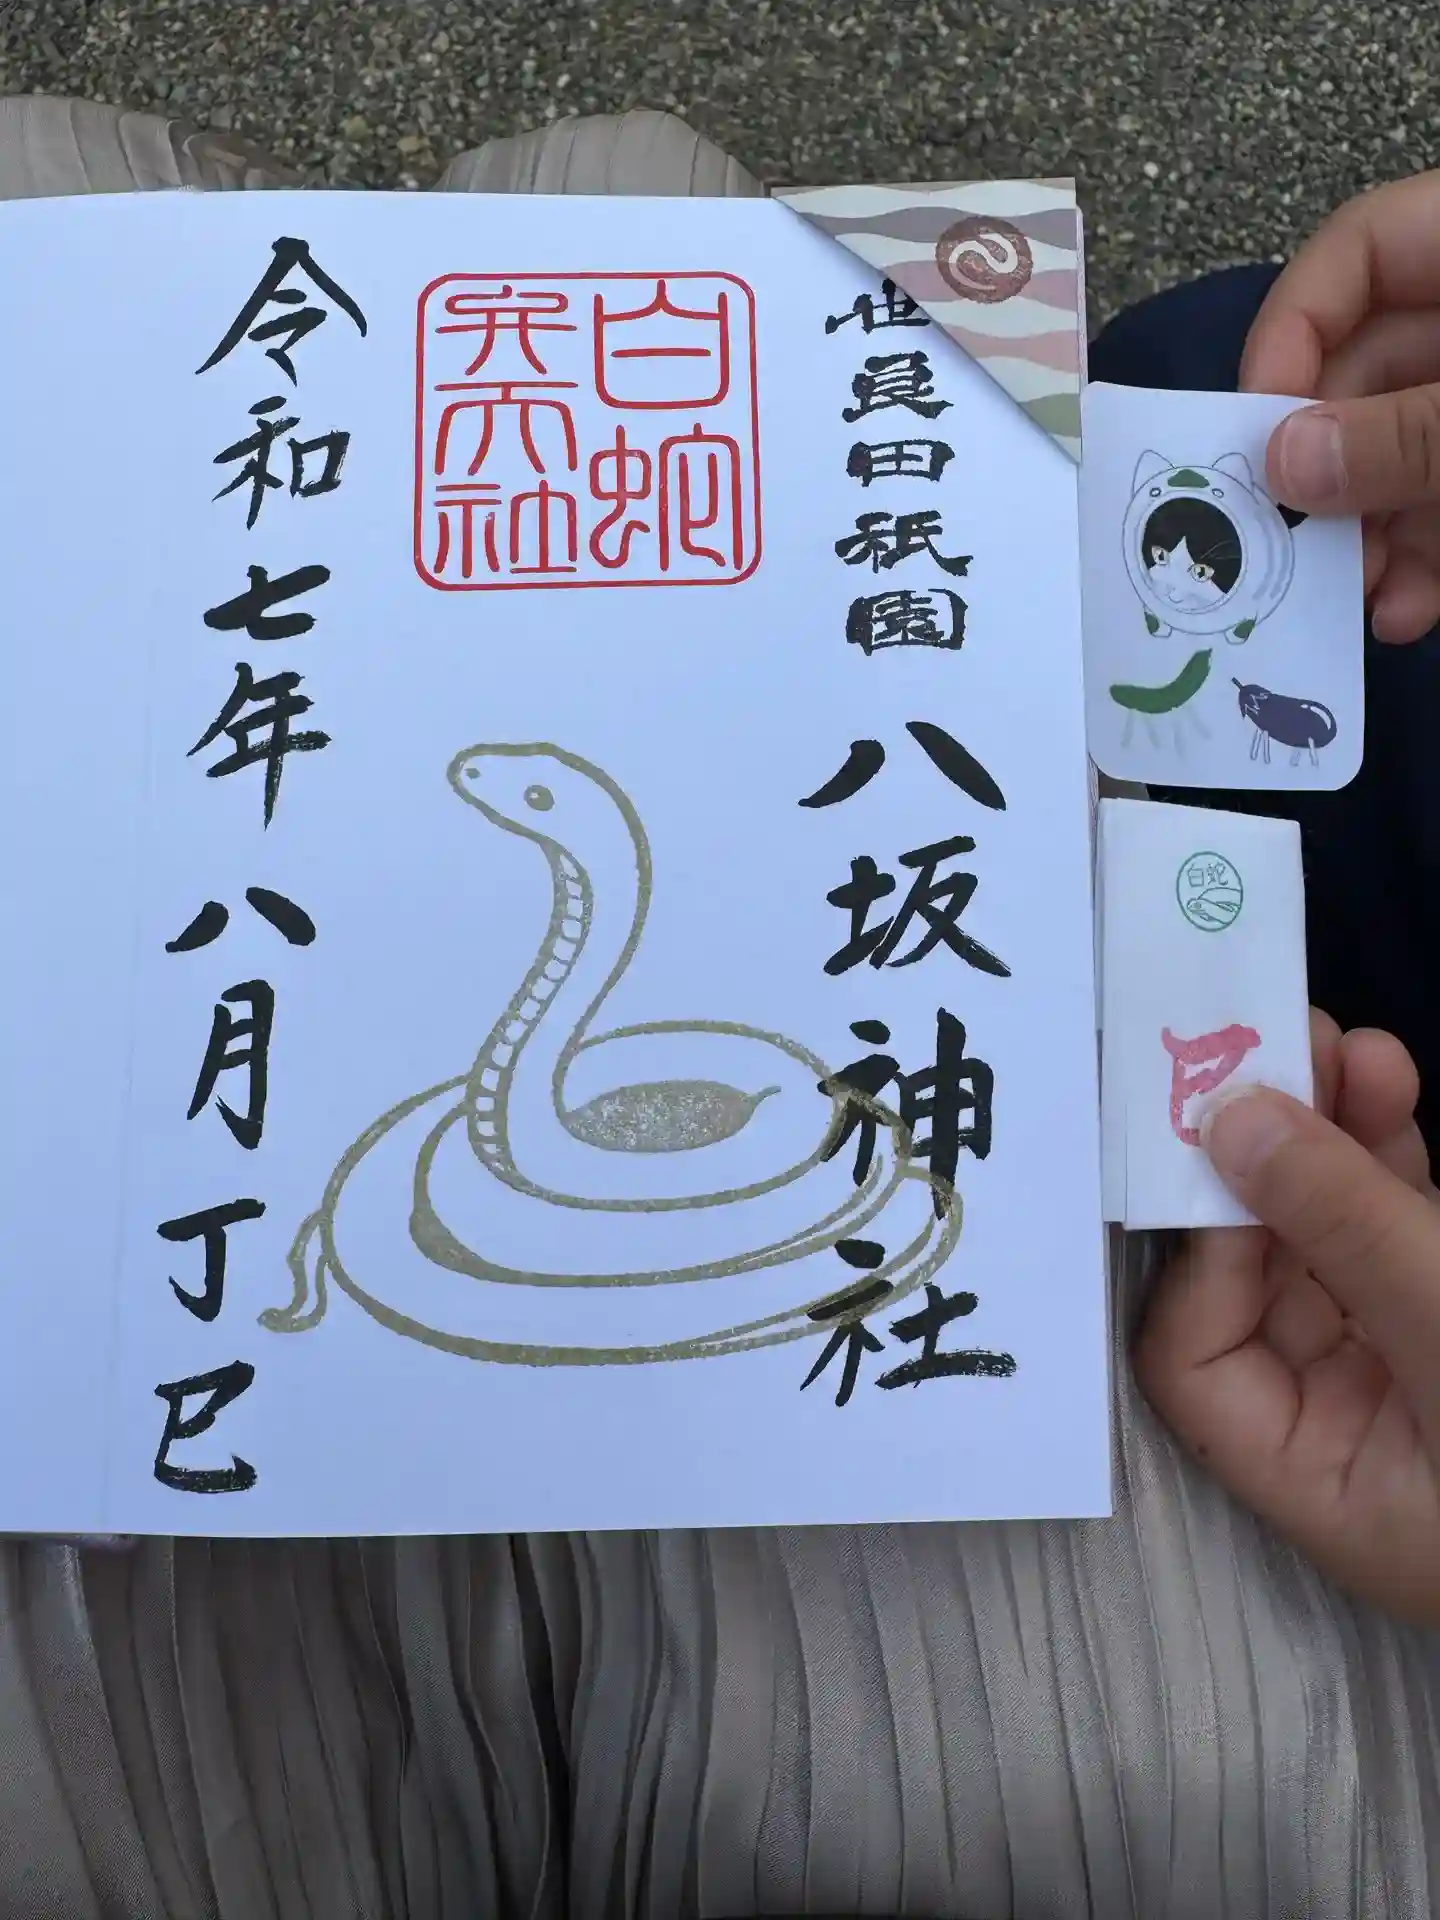 世良田祇園
八坂神社
白蛇
弁天社
令和七年八月丁巳
白蛇
巳